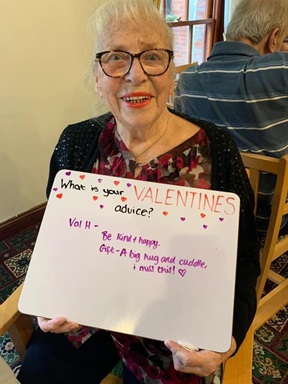 What is your VALENTINES
advice?
Val H -
Be kind & happy.
Gift - A big hug and cuddle,
i miss this! ♡